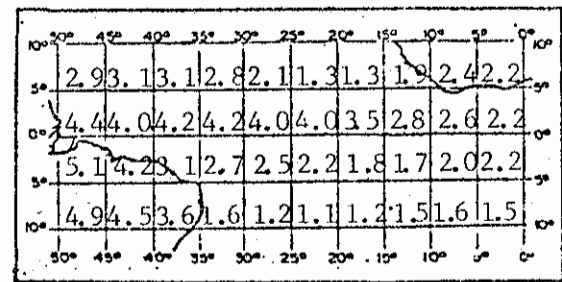 10° 50° 45° 40° 35° 30° 25° 20° 15° 10° 5° 0° 10°
2.9 3.1 3.1 2.8 2.1 1.3 1.3 1.9 2.4 2.2
5° 5°
4.4 4.0 4.2 4.2 4.0 4.0 3.5 2.8 2.6 2.2
0° 0°
5.1 4.2 3.1 2.7 2.5 2.2 1.8 1.7 2.0 2.2
5° 5°
4.9 4.5 3.6 1.6 1.2 1.1 1.2 1.5 1.6 1.5
10° 10°
50° 45° 40° 35° 30° 25° 20° 15° 10° 5° 0°